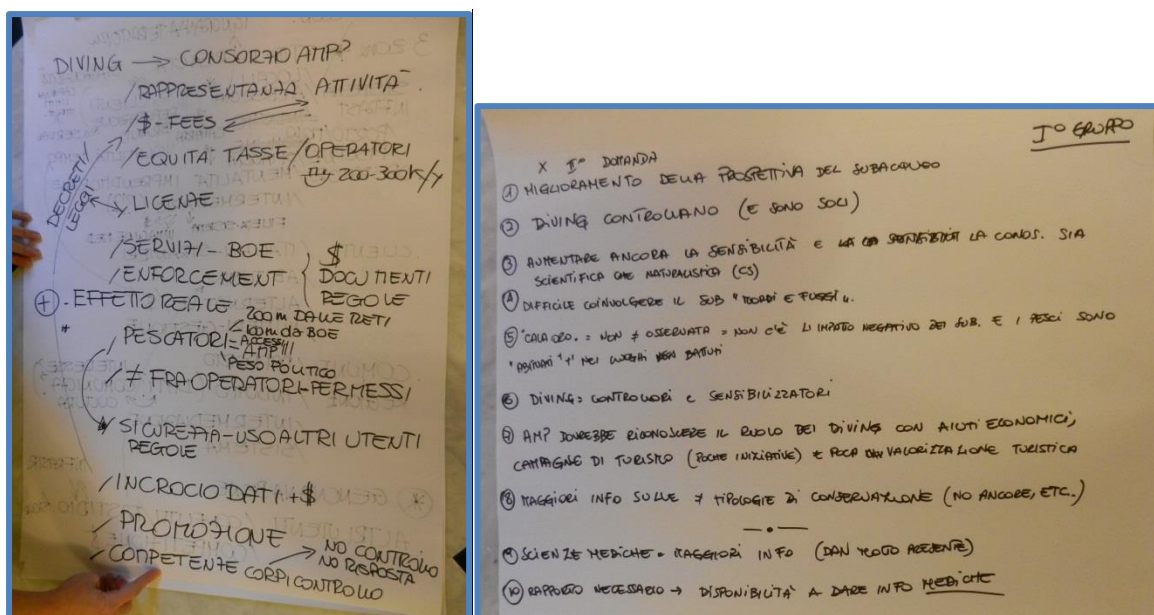 DIVING → CONSORZIO AMP?
/RAPPRESENTANZA ATTIVITÀ
/$-FEES
/EQUITÀ TASSE/OPERATORI
200-300k/y
DECRETI/
LEGGI
/LICENZE
/SERVIZI - BOE
/ENFORCEMENT
$
DOCUMENTI
REGOLE
(+) - EFFETTO REALE
/PESCATORI
200m DALLE RETI
100m da BOE
ACCESSI
AMP!!!
PESO POLITICO
/≠ FRA OPERATORI-PERMESSI
/SICUREZZA-USO ALTRI UTENTI
REGOLE
/INCROCIO DATI + $
/PROMOZIONE
/COMPETENZE CORPI CONTROLLO
→ NO CONTROLLO
→ NO RISPOSTA
I° GRUPPO
X I° DOMANDA
① MIGLIORAMENTO DELLA PROSPETTIVA DEL SUBACQUEO
② DIVING CONTROLLANO (E SONO SOLI)
③ AUMENTARE ANCORA LA SENSIBILITÀ E LA CONOS. SIA
SCIENTIFICA CHE NATURALISTICA (CS)
④ DIFFICILE COINVOLGERE IL SUB "MORDI E FUGGI".
⑤ "CALA ORO. = NON ≠ OSSERVATA = NON C'È IMPATTO NEGATIVO DEI SUB. E I PESCI SONO
NEI LUOGHI BATTUTI
⑥ DIVING = CONTROLLORI E SENSIBILIZZATORI
⑦ AMP DOVREBBE RICONOSCERE IL RUOLO DEI DIVING CON AIUTI ECONOMICI,
CAMPAGNE DI TURISMO (POCHE INIZIATIVE) E POCA VALORIZZAZIONE TURISTICA
⑧ MAGGIORI INFO SULLE ≠ TIPOLOGIE DI CONSERVAZIONE (NO ANCORE, ETC.)
⑨ SCIENZE MEDICHE = MAGGIORI INFO (DAN MOLTO PRESENTE)
⑩ RAPPORTO NECESSARIO → DISPONIBILITÀ A DARE INFO MEDICHE